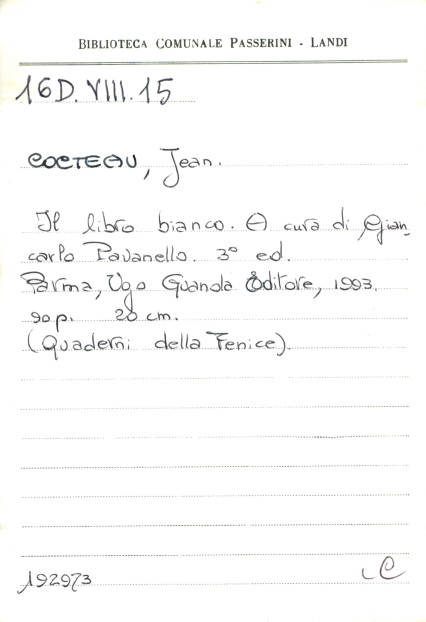 BIBLIOTECA COMUNALE PASSERINI - LANDI
16D. VIII. 15
COCTEAU, Jean.
Il libro bianco. A cura di Gian
carlo Pavanello. 3° ed.
Parma, Ugo Guanda Editore, 1993.
90 p. 20 cm.
(Quaderni della Fenice).
192973
C